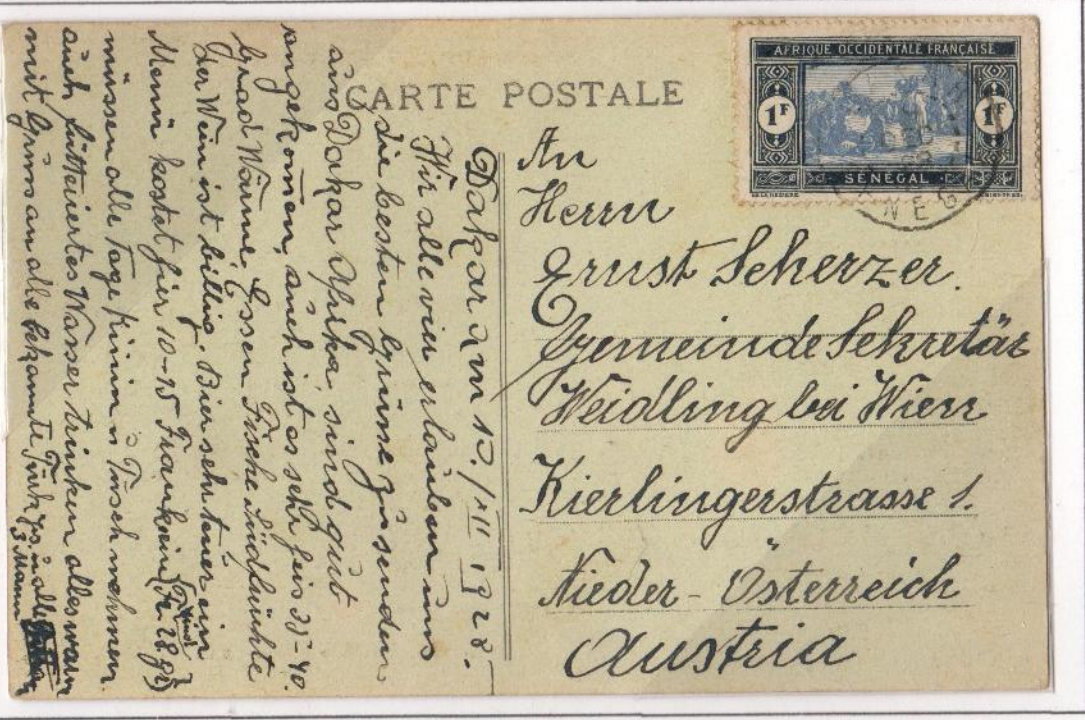 CARTE POSTALE
AFRIQUE OCCIDENTALE FRANÇAISE
1F 1F
SÉNÉGAL
NEG
An
Herrn
Ernst Scherzer.
Gemeinde Sekretär
Weidling bei Wien
Kierlingerstrasse 1.
Nieder-Österreich
Austria
Dakar am 10./XII 1928.
Wir alle vier erlauben uns
die besten Grüsse zu senden
aus Dakar Afrika sind gut
angekomen, auch ist es sehr heis 35-40
Grad Wärme, Essen Fische Südfrüchte
der Wein ist billig. Bier sehr teuer ein
Menü kostet hier 10-15 Franken (Fr. 28 gr)
müssen alle Tage Kinin z Tisch nehmen
auch filtriertes Wasser trinken alles warm
mit Gruss an alle bekannte u. alle
3 Mann